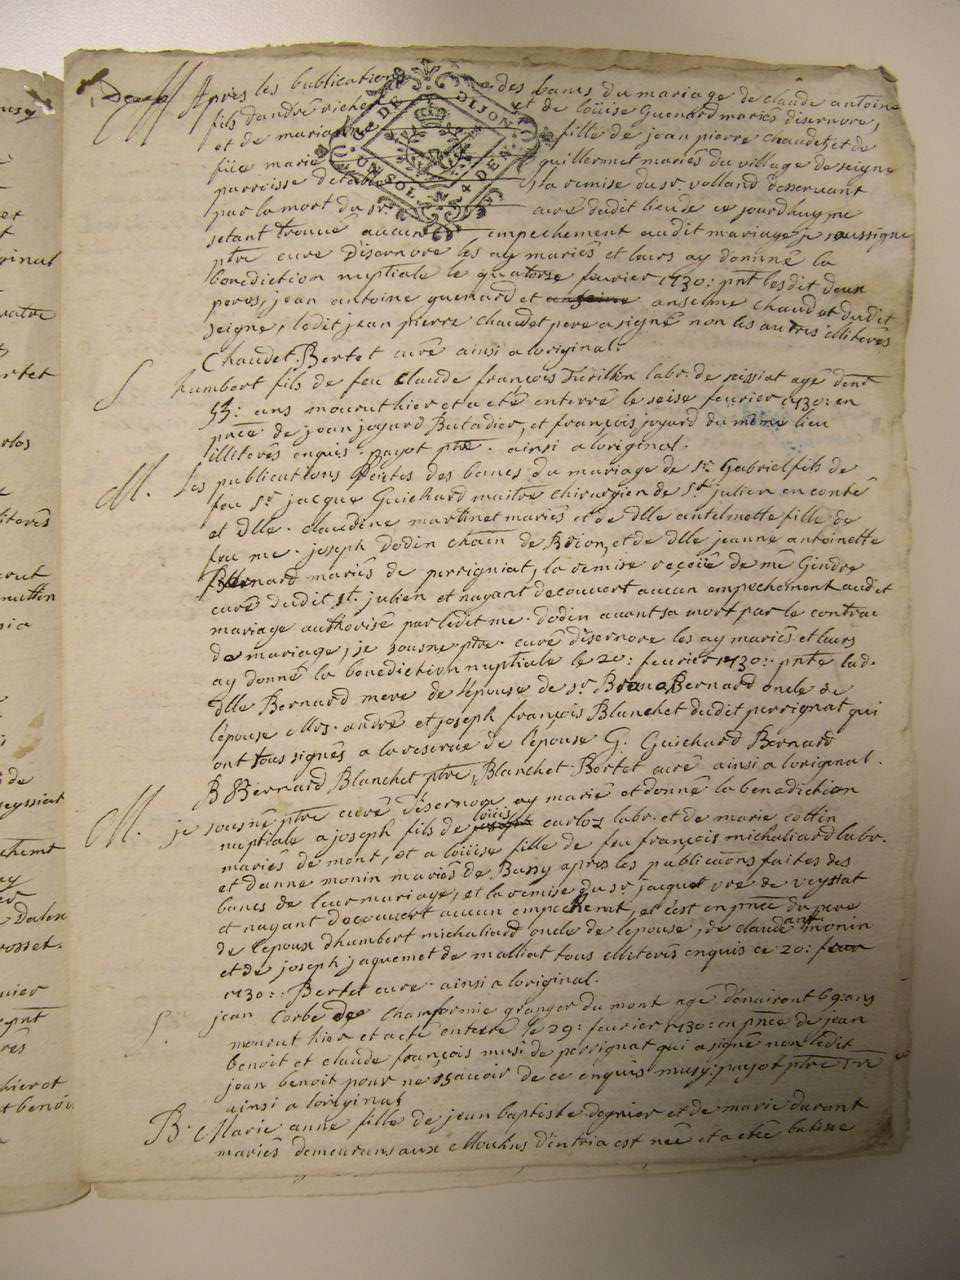 Apres les publications des bancs du mariage de claude antoine
fils d'andré et de loüise Guenard mariés disernore,
et de marianne fille de jean pierre chaudet et de
füe marie guillermet mariés du village de seigne
parroisse la remise du sr. volland desservant
par la mort du sr. curé dudit lieu de ce jourdhuy ne
setant trouvé aucun empechement audit mariage je soussigné
ptre curé disernore les ay mariés et leurs ay donné la
benediction nuptiale le quatorse fevrier 1730: pnt lesdit deux
peres, jean antoine guenard et anselme chaudet dudit
seigne, ledit jean pierre chaudet pere a signé non les autres illiterés
Chaudet. Bertet curé ainsi a loriginal.
S humbert fils de feu claude françois labr. de seissiat agé denv
55: ans mourut hier et a eté enterré le seise fevrier 1730: en
pnce de jean joyard et françois joyard du même lieu
illiterés enquis. payot ptre. ainsi a loriginal.
M. Les publications faites des bancs du mariage de Sr. Gabriel fils de
feu Sr. jacque Guichard maitre chirurgien de St. julien en conté
et dlle. claudine martinet mariés et de dlle antelmette fille de
feu me. joseph dodin et de dlle jeanne antoinette
Bernard mariés de perrigniat, la remise reçeüe de me Gindre
curé dudit St. julien et nayant decouvert aucun empechement audit
mariage authorisé par ledit me. dodin avant sa mort par le contrac
de mariage, je sousne ptre. curé disernore les ay mariés et leurs
ay donné la benediction nuptiale le 20: fevrier 1730: pnte lad.
dlle Bernard mere de l'épouse de sr Bernard oncle de
l'épouse mrs. andré et joseph françois Blanchet dudit perrignat qui
ont tous signés a la reserve de l'épouse G. Guichard Bernard
B Bernard Blanchet ptre, Blanchet. Bertet curé ainsi a loriginal.
M. je sousne ptre curé disernore ay marié et donné la benediction
nuptiale a joseph fils de loüis carloz labr. et de marie cottin
mariés de mont, et a loüise fille de feu françois michaliard labr.
et danne monin mariés de Bussy apres les publications faites des
bancs de leur mariage, et la remise du sr. jaquet vre de veyssiat
et nayant decouvert aucun empechemt, et c'est en pnce du pere
de l'epoux dhumbert michaliard oncle de l'epouse, de claude ant. monin
et de joseph jaquemet de malliat tous illiterés enquis ce 20: fevr
1730: Bertet curé. ainsi a loriginal.
S. jean Corbe de Chamformie granger du mont agé d'environt 69: ans
mourut hier et a eté enterré le 29: fevrier 1730: en pnce de jean
benoit et claude françois musi de perrignat qui a signé non ledit
jean benoit pour ne sçavoir de ce enquis musy: payot ptre vre
ainsi a loriginal
B. Marie anne fille de jean baptiste degnier et de marie durant
mariés demeurans aux Moulins d'intria est née et a eté batisée